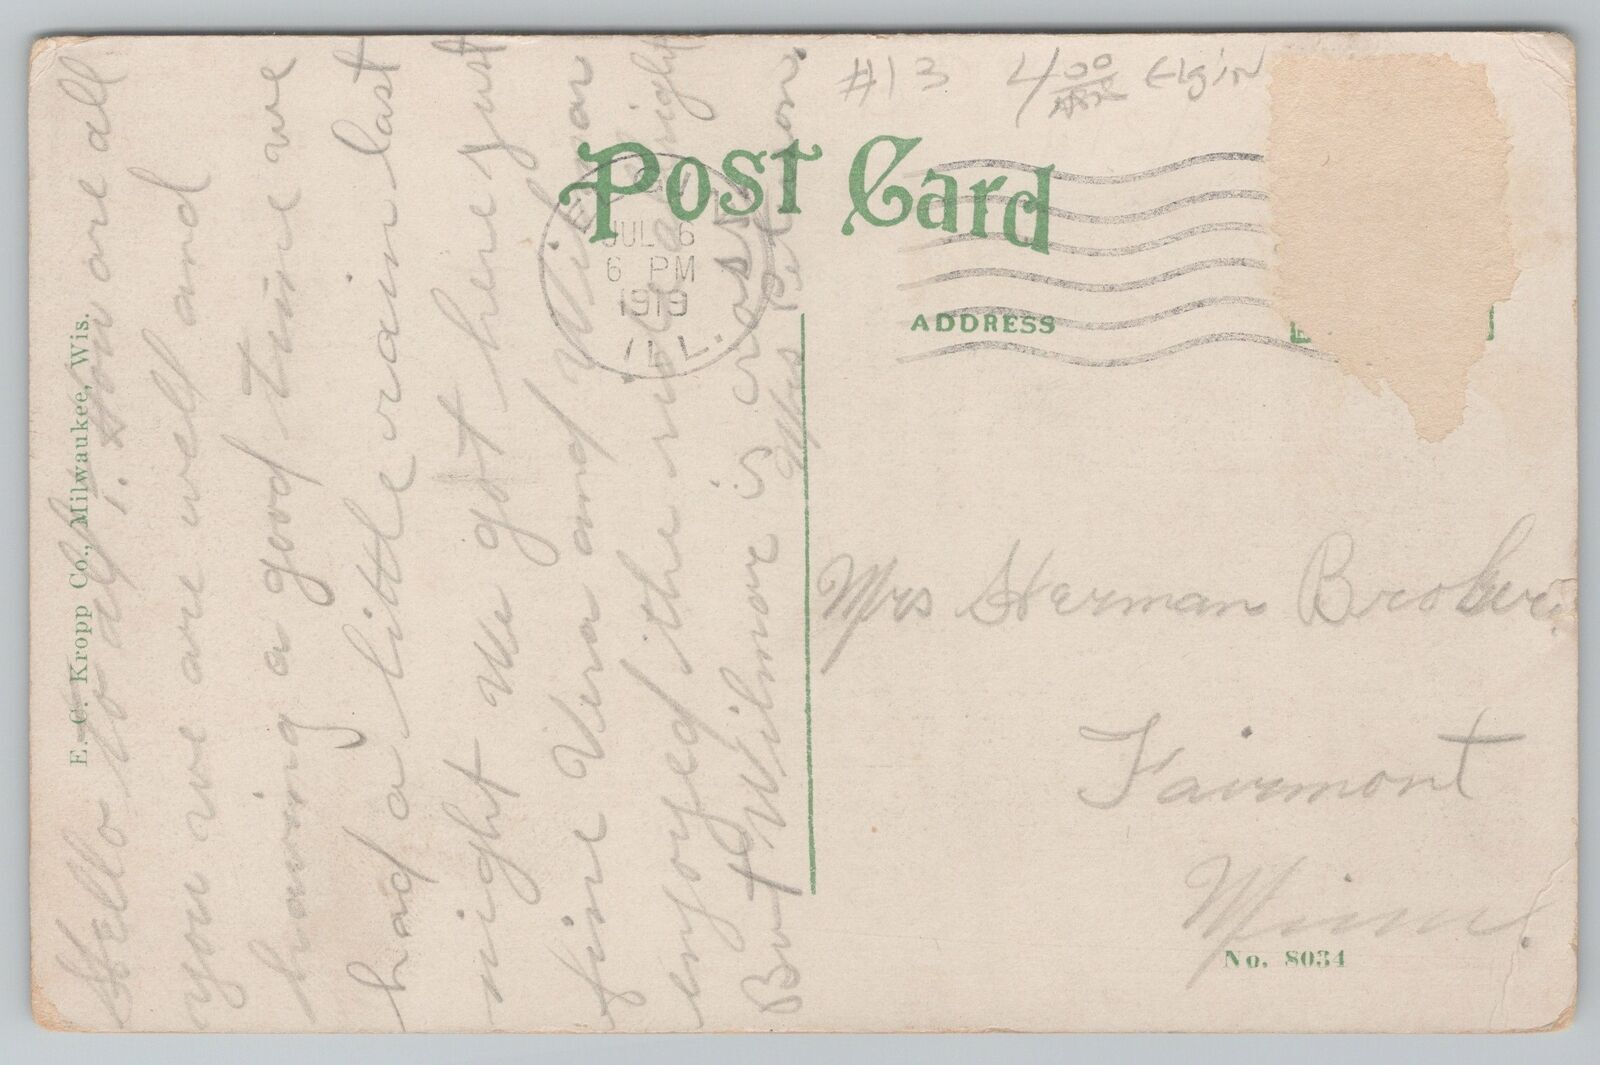 #13 4 00 Elgin
Post Card
ELGIN
JUL 6
6 PM
1919
ILL.
ADDRESS
Mrs Herman Broker
Fairmont
Minn.
No. 8034
E. C. Kropp Co., Milwaukee, Wis.
Hello to all. How are all
you we are well and
having a good time we
had a little rain last
night We got here just
fine Vera and Vivian
enjoyed the ride all right
But Wilmore is cross
Mrs Peterson